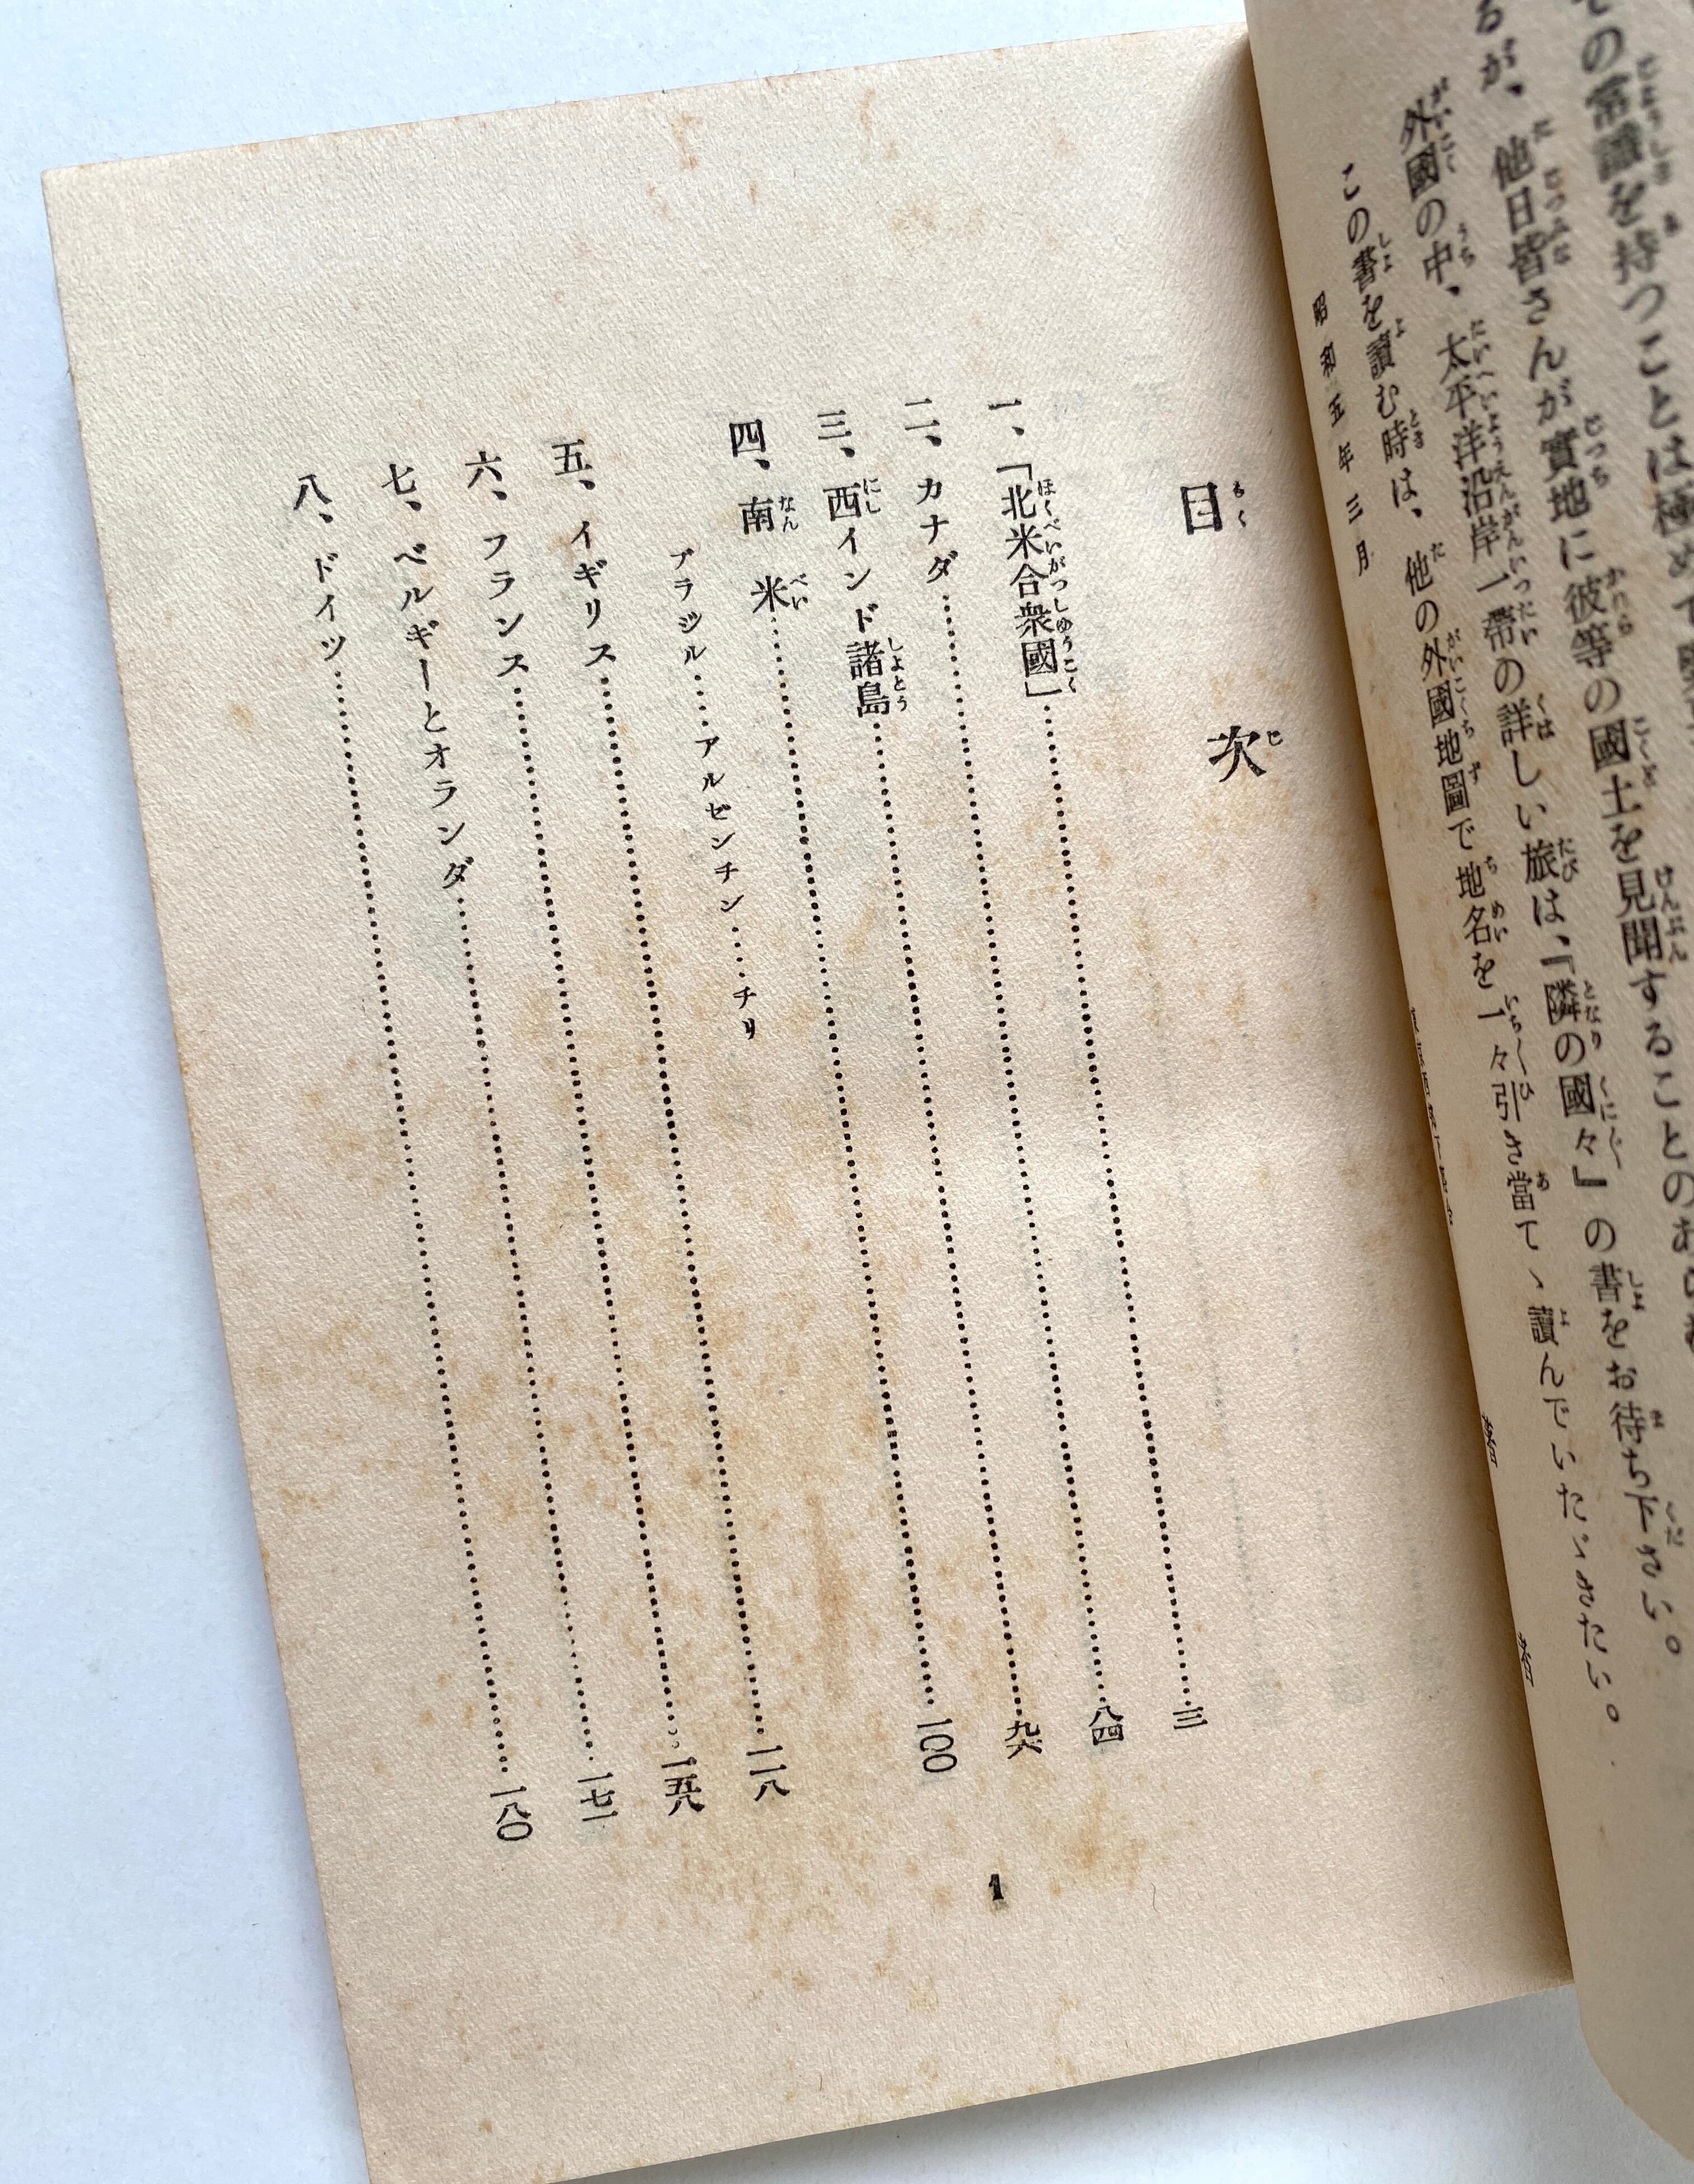 の常識を持つことは極めて
るが、他日皆さんが實地に彼等の國土を見聞することの
外國の中、太平洋沿岸一帶の詳しい旅は、『隣の國々』の書をお待ち下さい。
この書を讀む時は、他の外國地圖で地名を一々引き當てゝ讀んでいたゞきたい。
昭和五年三月
目次
一、「北米合衆國」……三
二、カナダ……八四
三、西インド諸島……九六
四、南米……一〇〇
ブラジル……アルゼンチン……チリ
五、イギリス……一一八
六、フランス……一五八
七、ベルギーとオランダ……一七一
八、ドイツ……一八〇
1